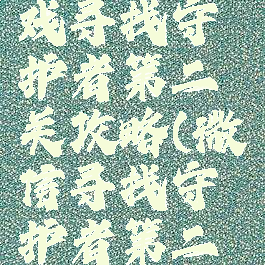 寻找守
护者第二
关攻略(
寻找守
护者第二